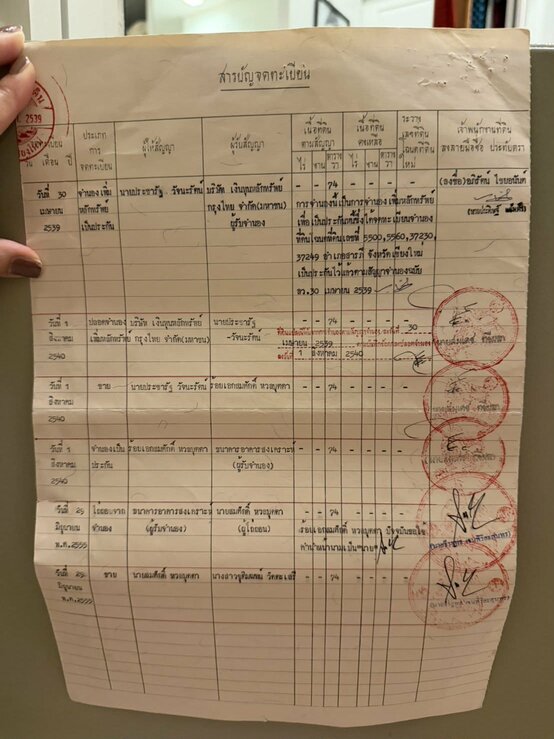 สารบัญจดทะเบียน
2539
จดทะเบียน
วัน เดือน ปี
ประเภท
การ
จดทะเบียน
ผู้ให้สัญญา
ผู้รับสัญญา
เนื้อที่ดิน
ตามสัญญา
ไร่ งาน ตารางวา
เนื้อที่ดิน
คงเหลือ
ไร่ งาน ตารางวา
ระวาง
เลขที่ดิน
โฉนดที่ดิน
ใหม่
เจ้าพนักงานที่ดิน
ลงลายมือชื่อ ประทับตรา
วันที่ 30
เมษายน
2539
จำนองเพิ่ม
หลักทรัพย์
เป็นประกัน
นายประชารัฐ วัจนะรัตน์
บริษัท เงินทุนหลักทรัพย์
กรุงไทย จำกัด(มหาชน)
ผู้รับจำนอง
- - 74 - - -
การจำนองนี้เป็นการจำนอง เพิ่มหลักทรัพย์
เพื่อ เป็นประกันหนี้ซึ่งได้จดทะเบียนจำนอง
ที่ดินโฉนดที่ดินเลขที่ 5500,5560,37230,
37249 อำเภอสารภี จังหวัดเชียงใหม่
เป็นประกันไว้แล้วตามสัญญาจำนองฉบับ
ลว.30 เมษายน 2539
(ลงชื่อ)อภิรัตน์ ไชยอนันต์
วันที่ 1
สิงหาคม
2540
ปลอดจำนอง
เพิ่มหลักทรัพย์
บริษัท เงินทุนหลักทรัพย์
กรุงไทย จำกัด(มหาชน)
นายประชารัฐ
วัจนะรัตน์
- - 74 - - -
30
เมษายน 2539
1 สิงหาคม 2540
วันที่ 1
สิงหาคม
2540
ขาย
นายประชารัฐ วัจนะรัตน์
ร้อยเอกสมศักดิ์ หวงบุตดา
- - 74 - - -
วันที่ 1
สิงหาคม
2540
จำนองเป็น
ประกัน
ร้อยเอกสมศักดิ์ หวงบุตดา
ธนาคารอาคารสงเคราะห์
(ผู้รับจำนอง)
- - 74 - - -
วันที่ 25
มิถุนายน
พ.ศ.2555
ไถ่ถอนจาก
จำนอง
ธนาคารอาคารสงเคราะห์
(ผู้รับจำนอง)
นายสมศักดิ์ หวงบุตดา
(ผู้ไถ่ถอน)
- - 74 - - -
ร้อยเอกสมศักดิ์ หวงบุตดา ปัจจุบันขอใช้
คำนำหน้านามเป็น"นาย"
วันที่ 25
มิถุนายน
พ.ศ.2555
ขาย
นายสมศักดิ์ หวงบุตดา
- - 74 - - -